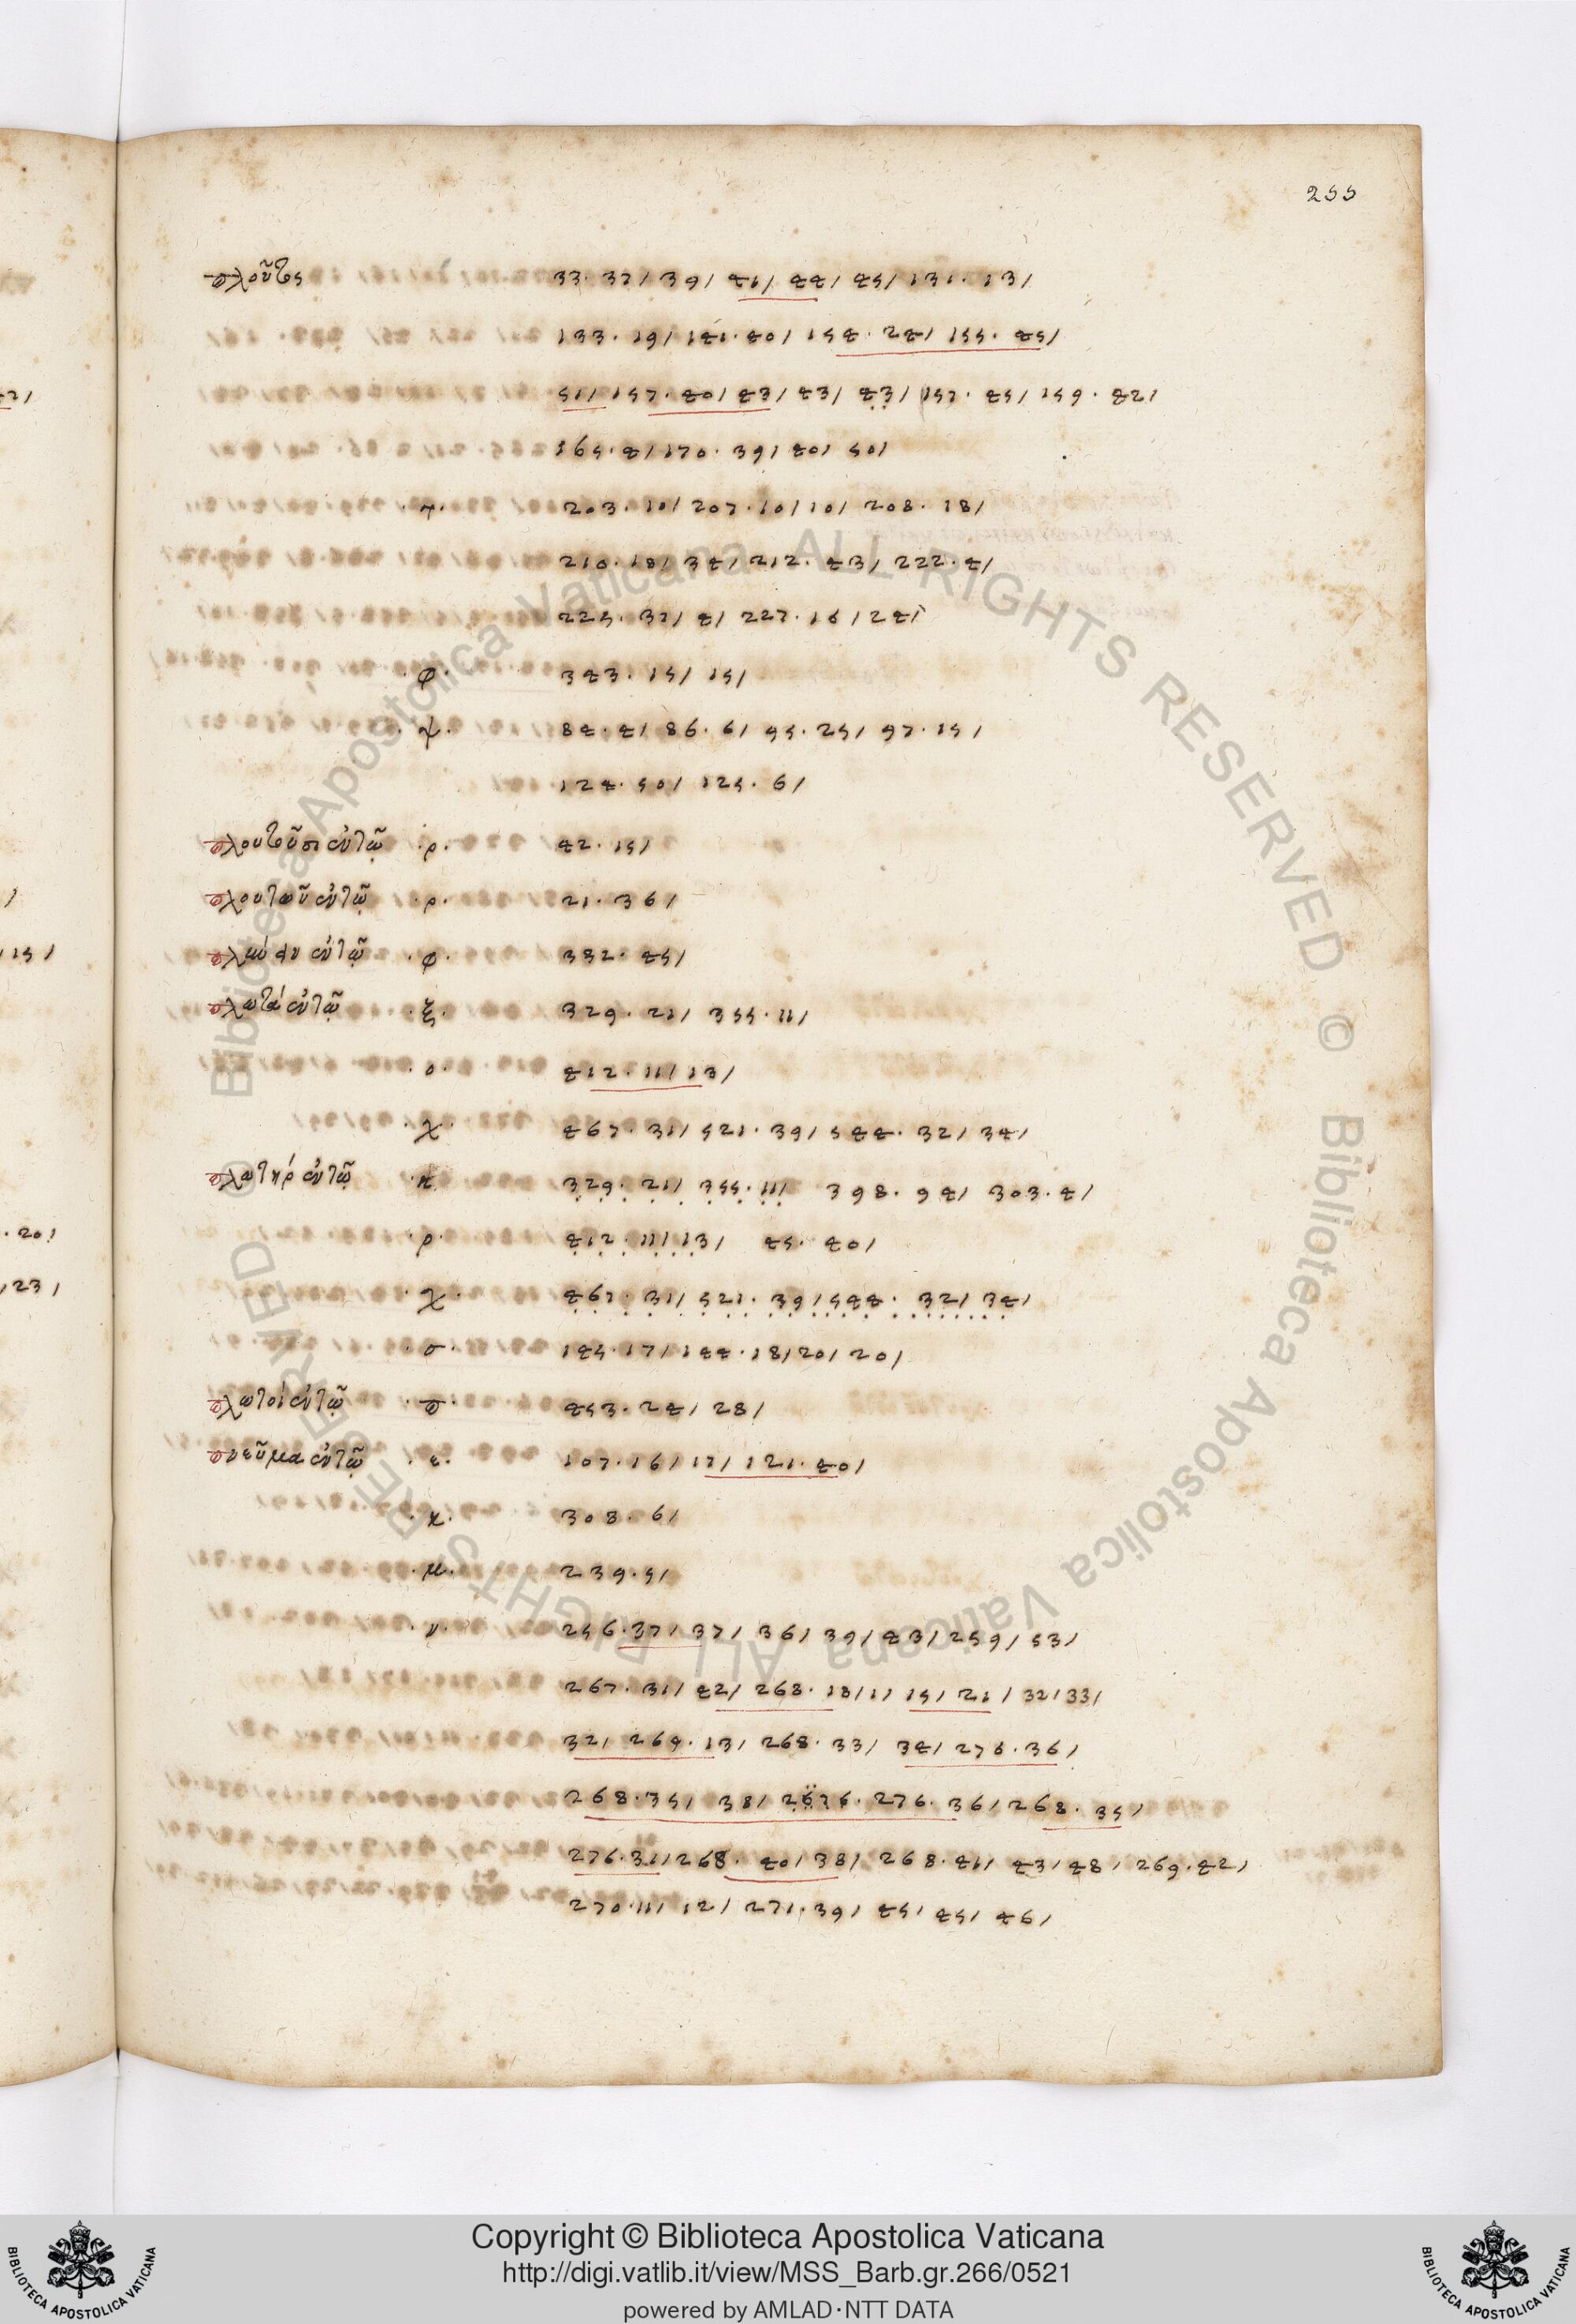 255
πλοῦτος 33. 37/ 39/ 41/ 44/ 45/ 131. 13/
133. 19/ 141. 40/ 154. 24/ 155. 45/
51/ 157. 40/ 43/ 43/ 43/ 157. 45/ 159. 42/
165. 4/ 170. 39/ 40/ 50/
203. 10/ 207. 10/ 10/ 208. 18/
210. 18/ 34/ 212. 43/ 222. 4/
225. 37/ 4/ 227. 16/ 24/
.φ. 343. 15/ 15/
.ψ. 84. 4/ 86. 6/ 95. 25/ 97. 15/
124. 50/ 125. 6/
πλουτοῦσι αὐτῷ .ρ. 42. 15/
πλουτοῦ αὐτῷ .ρ. 21. 36/
αὐτῷ .φ. 332. 45/
πλωτά αὐτῷ .ξ. 329. 21/ 355. 11/
.ο. 412. 11/ 13/
.χ. 467. 31/ 521. 39/ 544. 32/ 34/
πλωτήρ αὐτῷ .π. 329. 21/ 355. 11/ 398. 94/ 303. 4/
.ρ. 412. 11/ 13/ 45. 40/
.χ. 467. 31/ 521. 39/ 544. 32/ 34/
.σ. 145. 17/ 144. 18/ 20/ 20/
πλωτοί αὐτῷ .π. 453. 24/ 28/
πνεῦμα αὐτῷ .ε. 107. 16/ 17/ 121. 40/
.κ. 308. 6/
.μ. 239. 5/
.ν. 256. 37/ 37/ 36/ 39/ 43/ 259/ 53/
267. 31/ 42/ 268. 18/ 1/ 15/ 21/ 32/ 33/
32/ 269. 13/ 268. 33/ 34/ 276. 36/
268. 35/ 38/ 276. 36/ 268. 35/
276. 31/ 268. 40/ 38/ 268. 41/ 43/ 48/ 269. 42/
270. 11/ 12/ 271. 39/ 45/ 45/ 46/
Copyright © Biblioteca Apostolica Vaticana
http://digi.vatlib.it/view/MSS_Barb.gr.266/0521
powered by AMLAD·NTT DATA